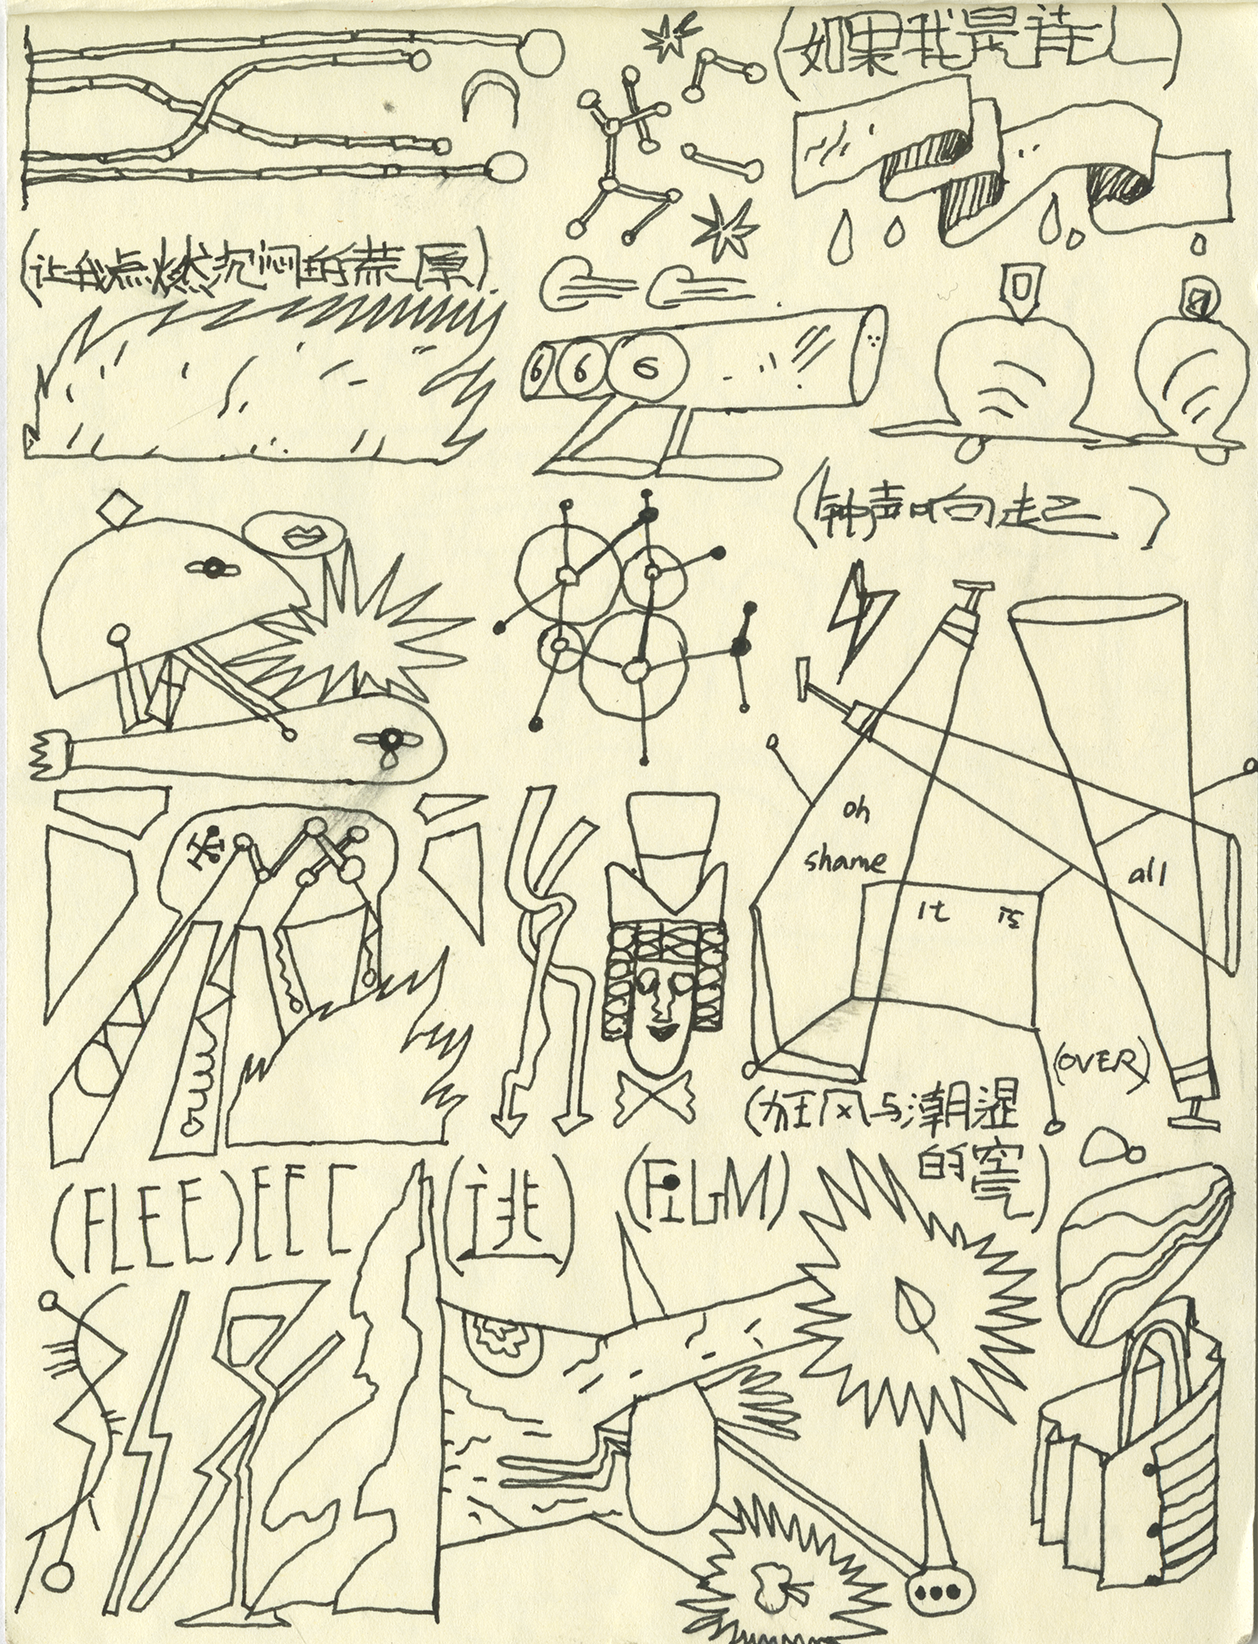 (如果我是诗人)
(让我点燃沉闷的荒原)
6 6 6
(钟声响起)
oh
shame
all
It is
(OVER)
(狂风与潮湿
的空气)
(FLEE)EEE
(逃)
(FILM)